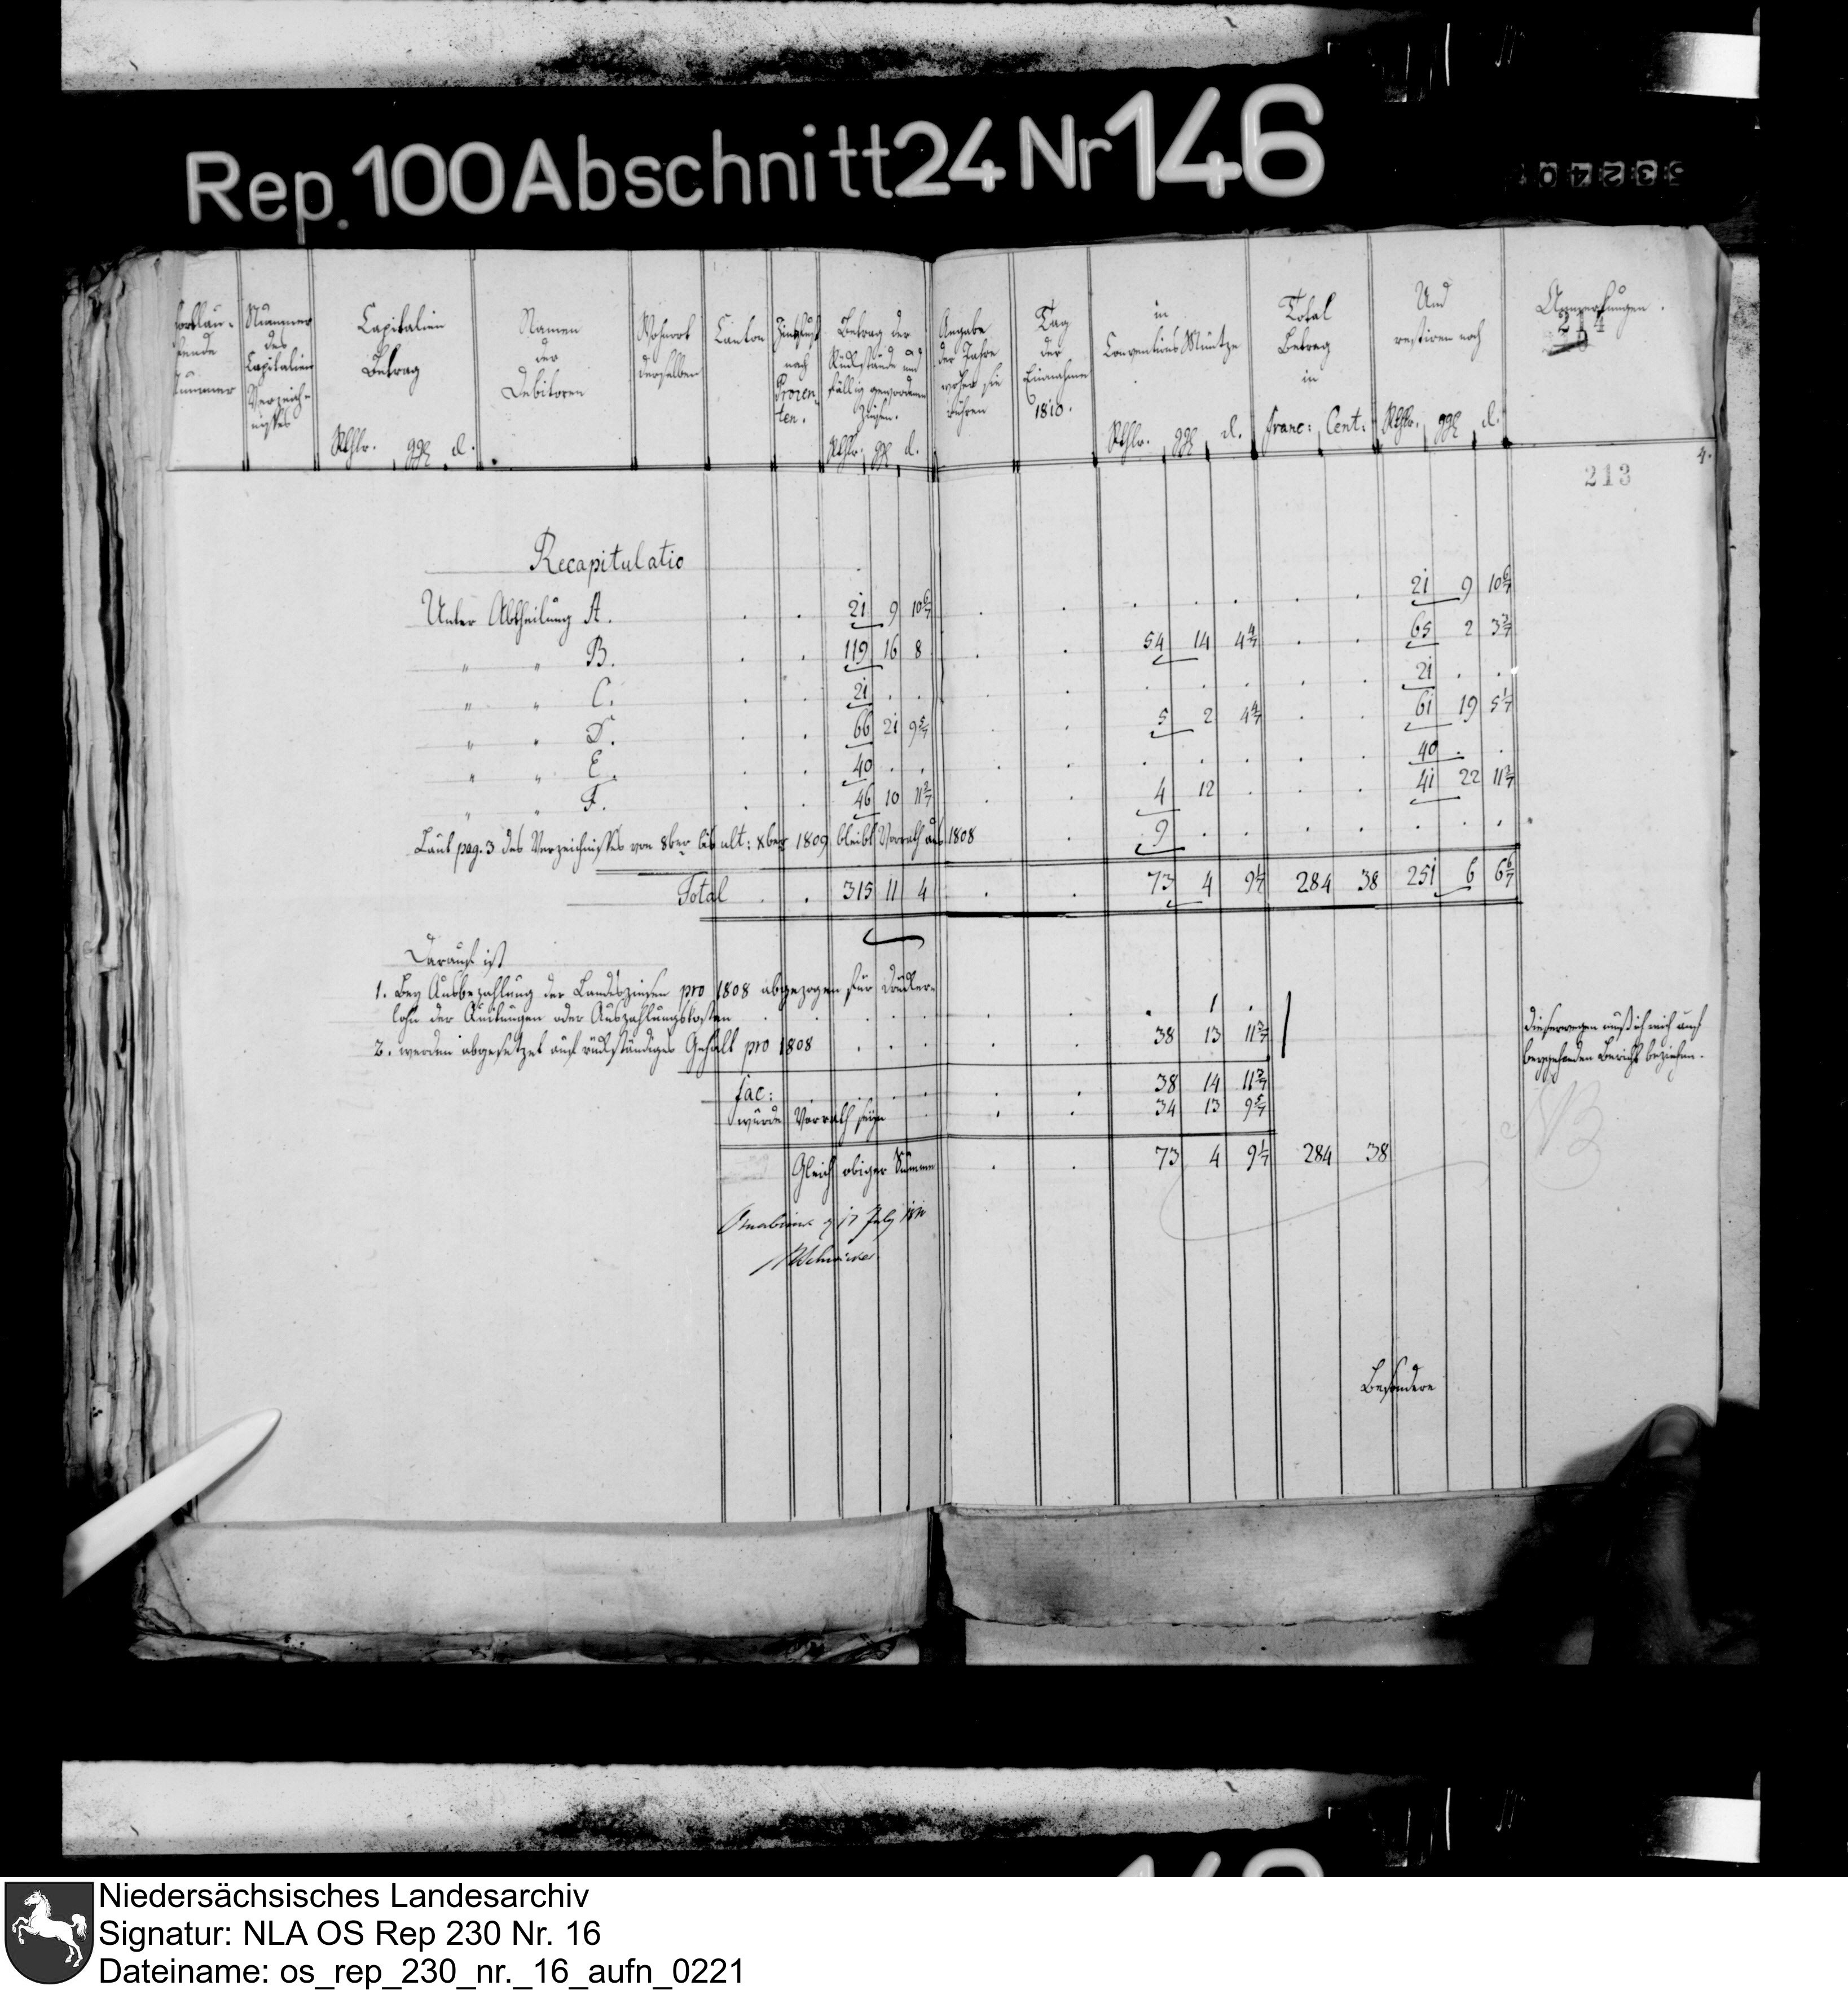 Rep. 100 Abschnitt 24 Nr 146
fortlau-
fende
Nummer
Nummer
des
Capitalien
Verzeich-
nißes
Capitalien
Betrag
Rthlr. ggl d.
Namen
der
Debitoren
Wohnort
derselben
Canton
Zinsfuß
nach
Procen-
ten.
Betrag der
Rückstände und
fällig gewordenen
Zinsen.
Rthlr. ggl d.
Angabe
der Jahre
woher sie
rühren
Tag
der
Einnahme
1810.
in
Conventions Müntze
Rthlr. ggl d.
Total
Betrag
in
franc: Cent:
Und
restiren noch
Rthlr. ggl d.
Anmerkungen.
214
4.
213
Recapitulatio
Unter Abtheilung A. 21 9 10 6/7 21 9 10 6/7
" " B. 119 16 8 54 14 4 4/7 65 2 3 3/7
" " C. 21 . . 21 . .
" " D. 66 21 9 5/7 5 2 4 4/7 61 19 5 1/7
" " E. 40 . . 40 . .
" " F. 46 10 11 3/7 4 12 . 41 22 11 3/7
Laut pag. 3 des Verzeichnißes von 8ber bis ult: xber 1809 bleibt Vorrath aus 1808 9 . .
Total 315 11 4 73 4 9 1/7 284 38 251 6 6 6/7
Darauf ist
1. Bey Ausbezahlung der Landeszinsen pro 1808 abgezogen für
lohn der Quitungen oder Auszahlungskosten . 1 .
2. werden abgesetzet auf rückständiges Gehalt pro 1808 38 13 11 3/7
dieserwegen muß ich mich auf
beygehenden Bericht beziehen.
fac: 38 14 11 3/7
würde Vorrath seyn 34 13 9 5/7
NB
Gleich obiger Summe 73 4 9 1/7 284 38
Osnabrück d 17 July 1810
Besondere
Niedersächsisches Landesarchiv
Signatur: NLA OS Rep 230 Nr. 16
Dateiname: os_rep_230_nr._16_aufn_0221